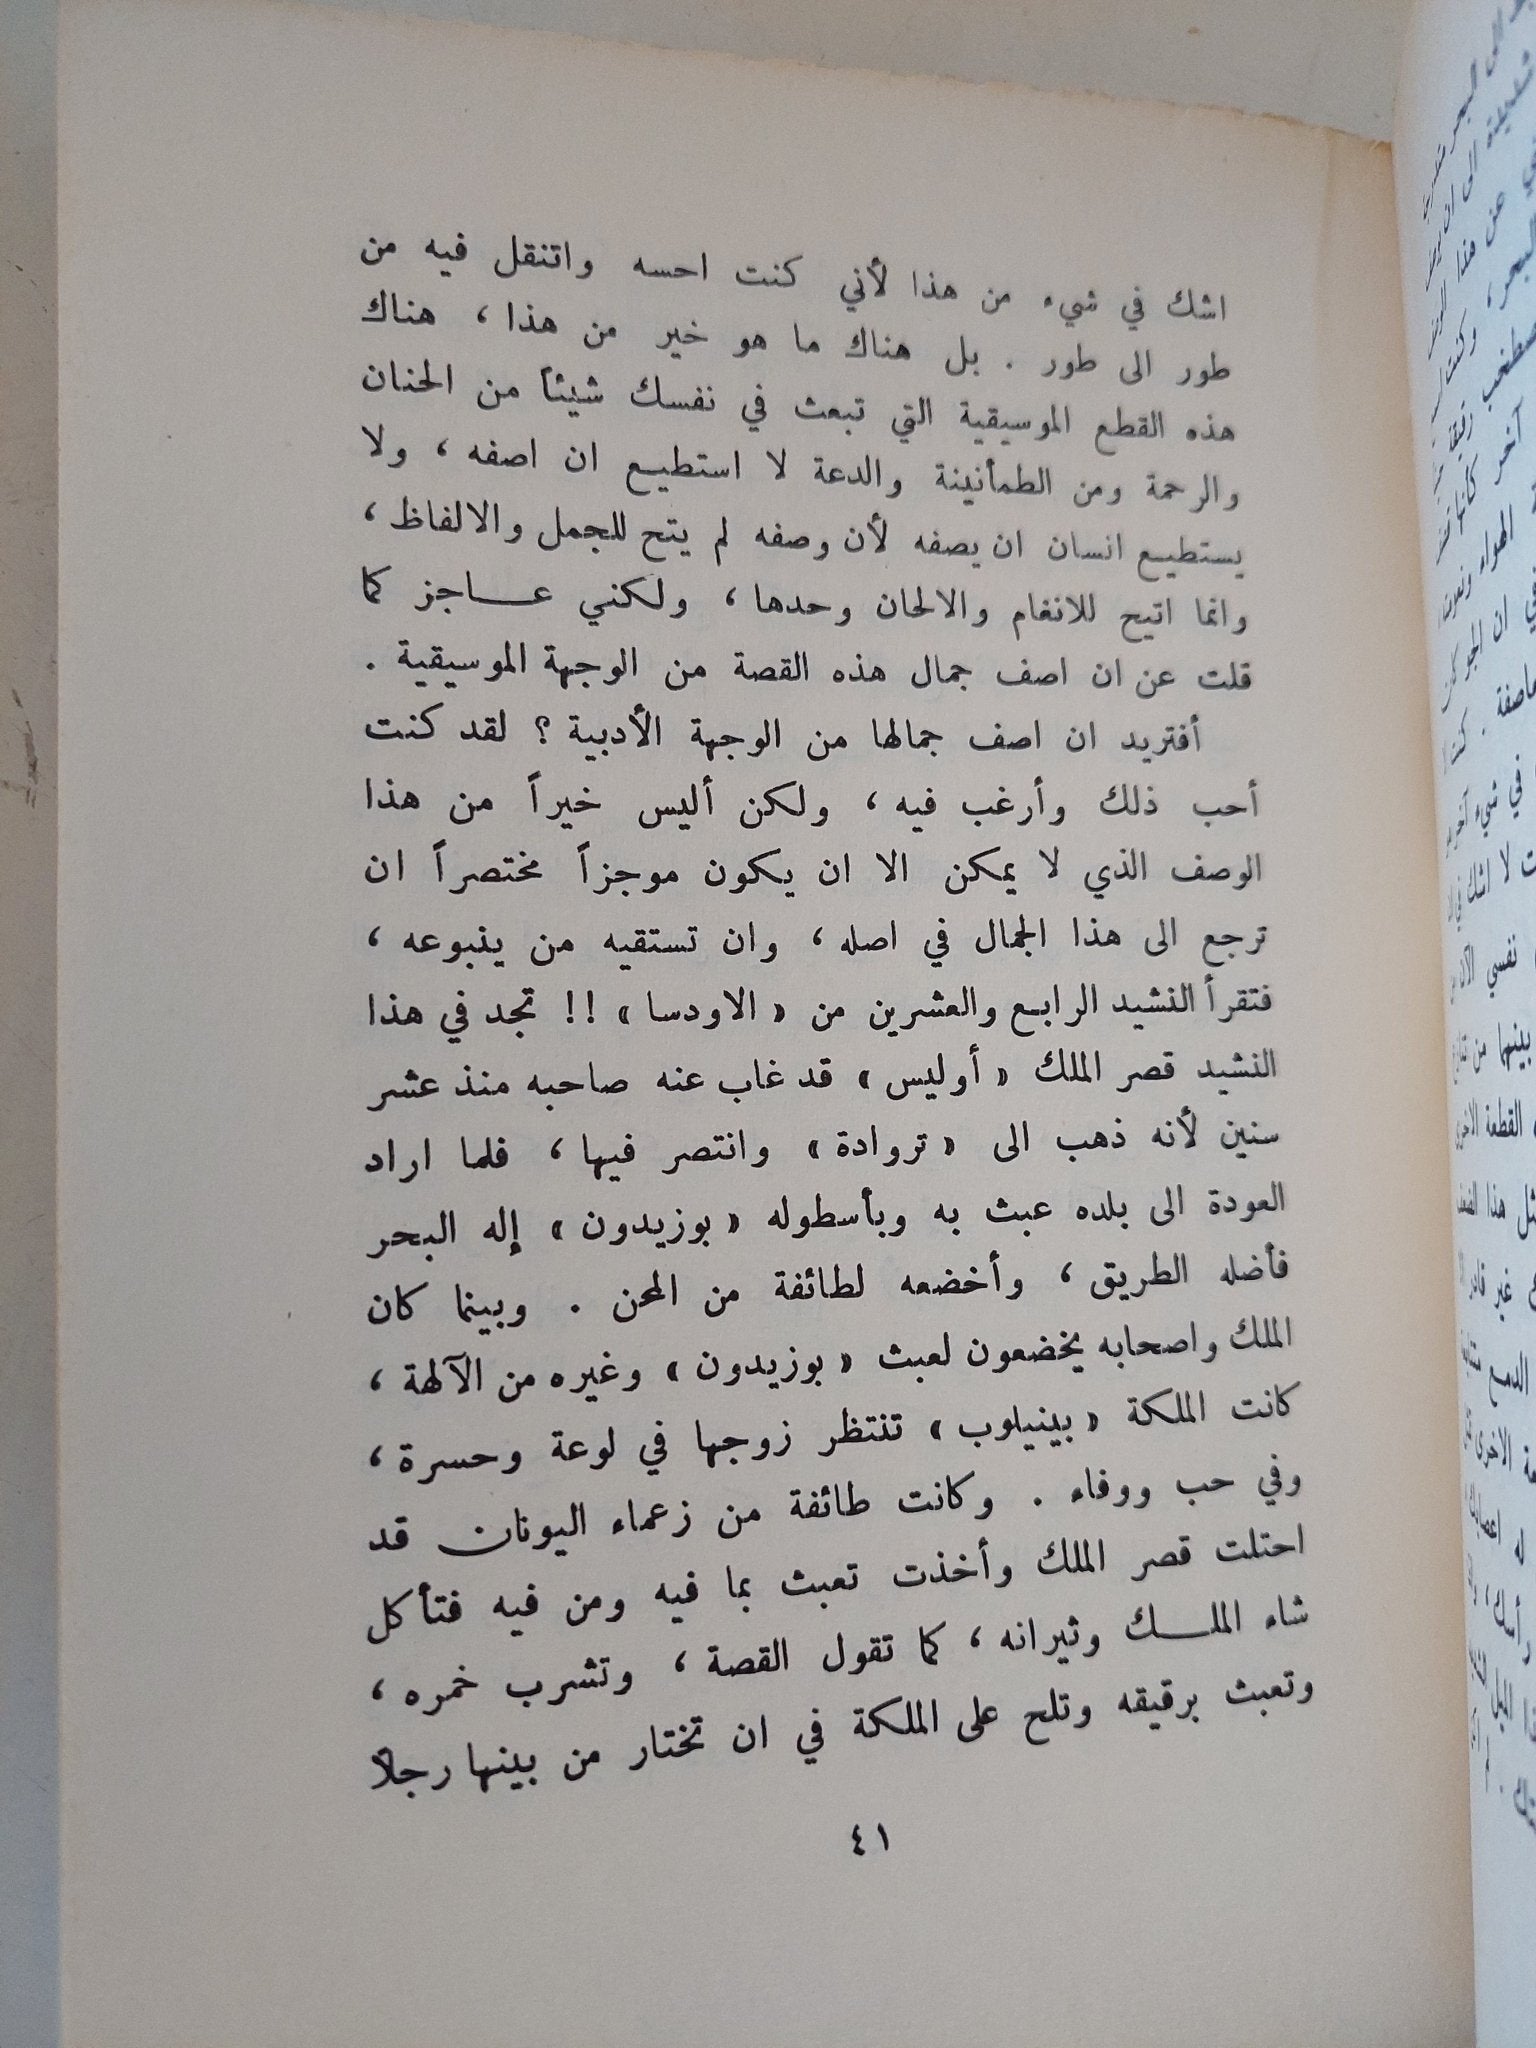 اشك في شيء من هذا لأني كنت احسه واتنقل فيه من
طور الى طور . بل هناك ما هو خير من هذا ، هناك
هذه القطع الموسيقية التي تبعث في نفسك شيئاً من الحنان
والرحمة ومن الطمأنينة والدعة لا استطيع ان اصفه ، ولا
يستطيع انسان ان يصفه لأن وصفه لم يتح للجمل والالفاظ ،
وانما اتيح للانغام والالحان وحدها ، ولكني عاجز كما
قلت عن ان اصف جمال هذه القصة من الوجهة الموسيقية .
أفتريد ان اصف جمالها من الوجهة الأدبية ؟ لقد كنت
أحب ذلك وأرغب فيه ، ولكن أليس خيراً من هذا
الوصف الذي لا يمكن الا ان يكون موجزاً مختصراً ان
ترجع الى هذا الجمال في اصله ، وان تستقيه من ينبوعه ،
فتقرأ النشيد الرابع والعشرين من « الاودسا » !! تجد في هذا
النشيد قصر الملك « أوليس » قد غاب عنه صاحبه منذ عشر
سنين لأنه ذهب الى « تروادة » وانتصر فيها ، فلما اراد
العودة الى بلده عبث به وبأسطوله « بوزيدون » إله البحر
فأضله الطريق ، وأخضعه لطائفة من المحن . وبينما كان
الملك واصحابه يخضعون لعبث « بوزيدون » وغيره من الآلهة ،
كانت الملكة « بينيلوب » تنتظر زوجها في لوعة وحسرة ،
وفي حب ووفاء . وكانت طائفة من زعماء اليونان قد
احتلت قصر الملك وأخذت تعبث بما فيه ومن فيه فتأكل
شاء الملك وثيرانه ، كما تقول القصة ، وتشرب خمره ،
وتعبث برقيقه وتلح على الملكة في ان تختار من بينها رجلاً
٤١